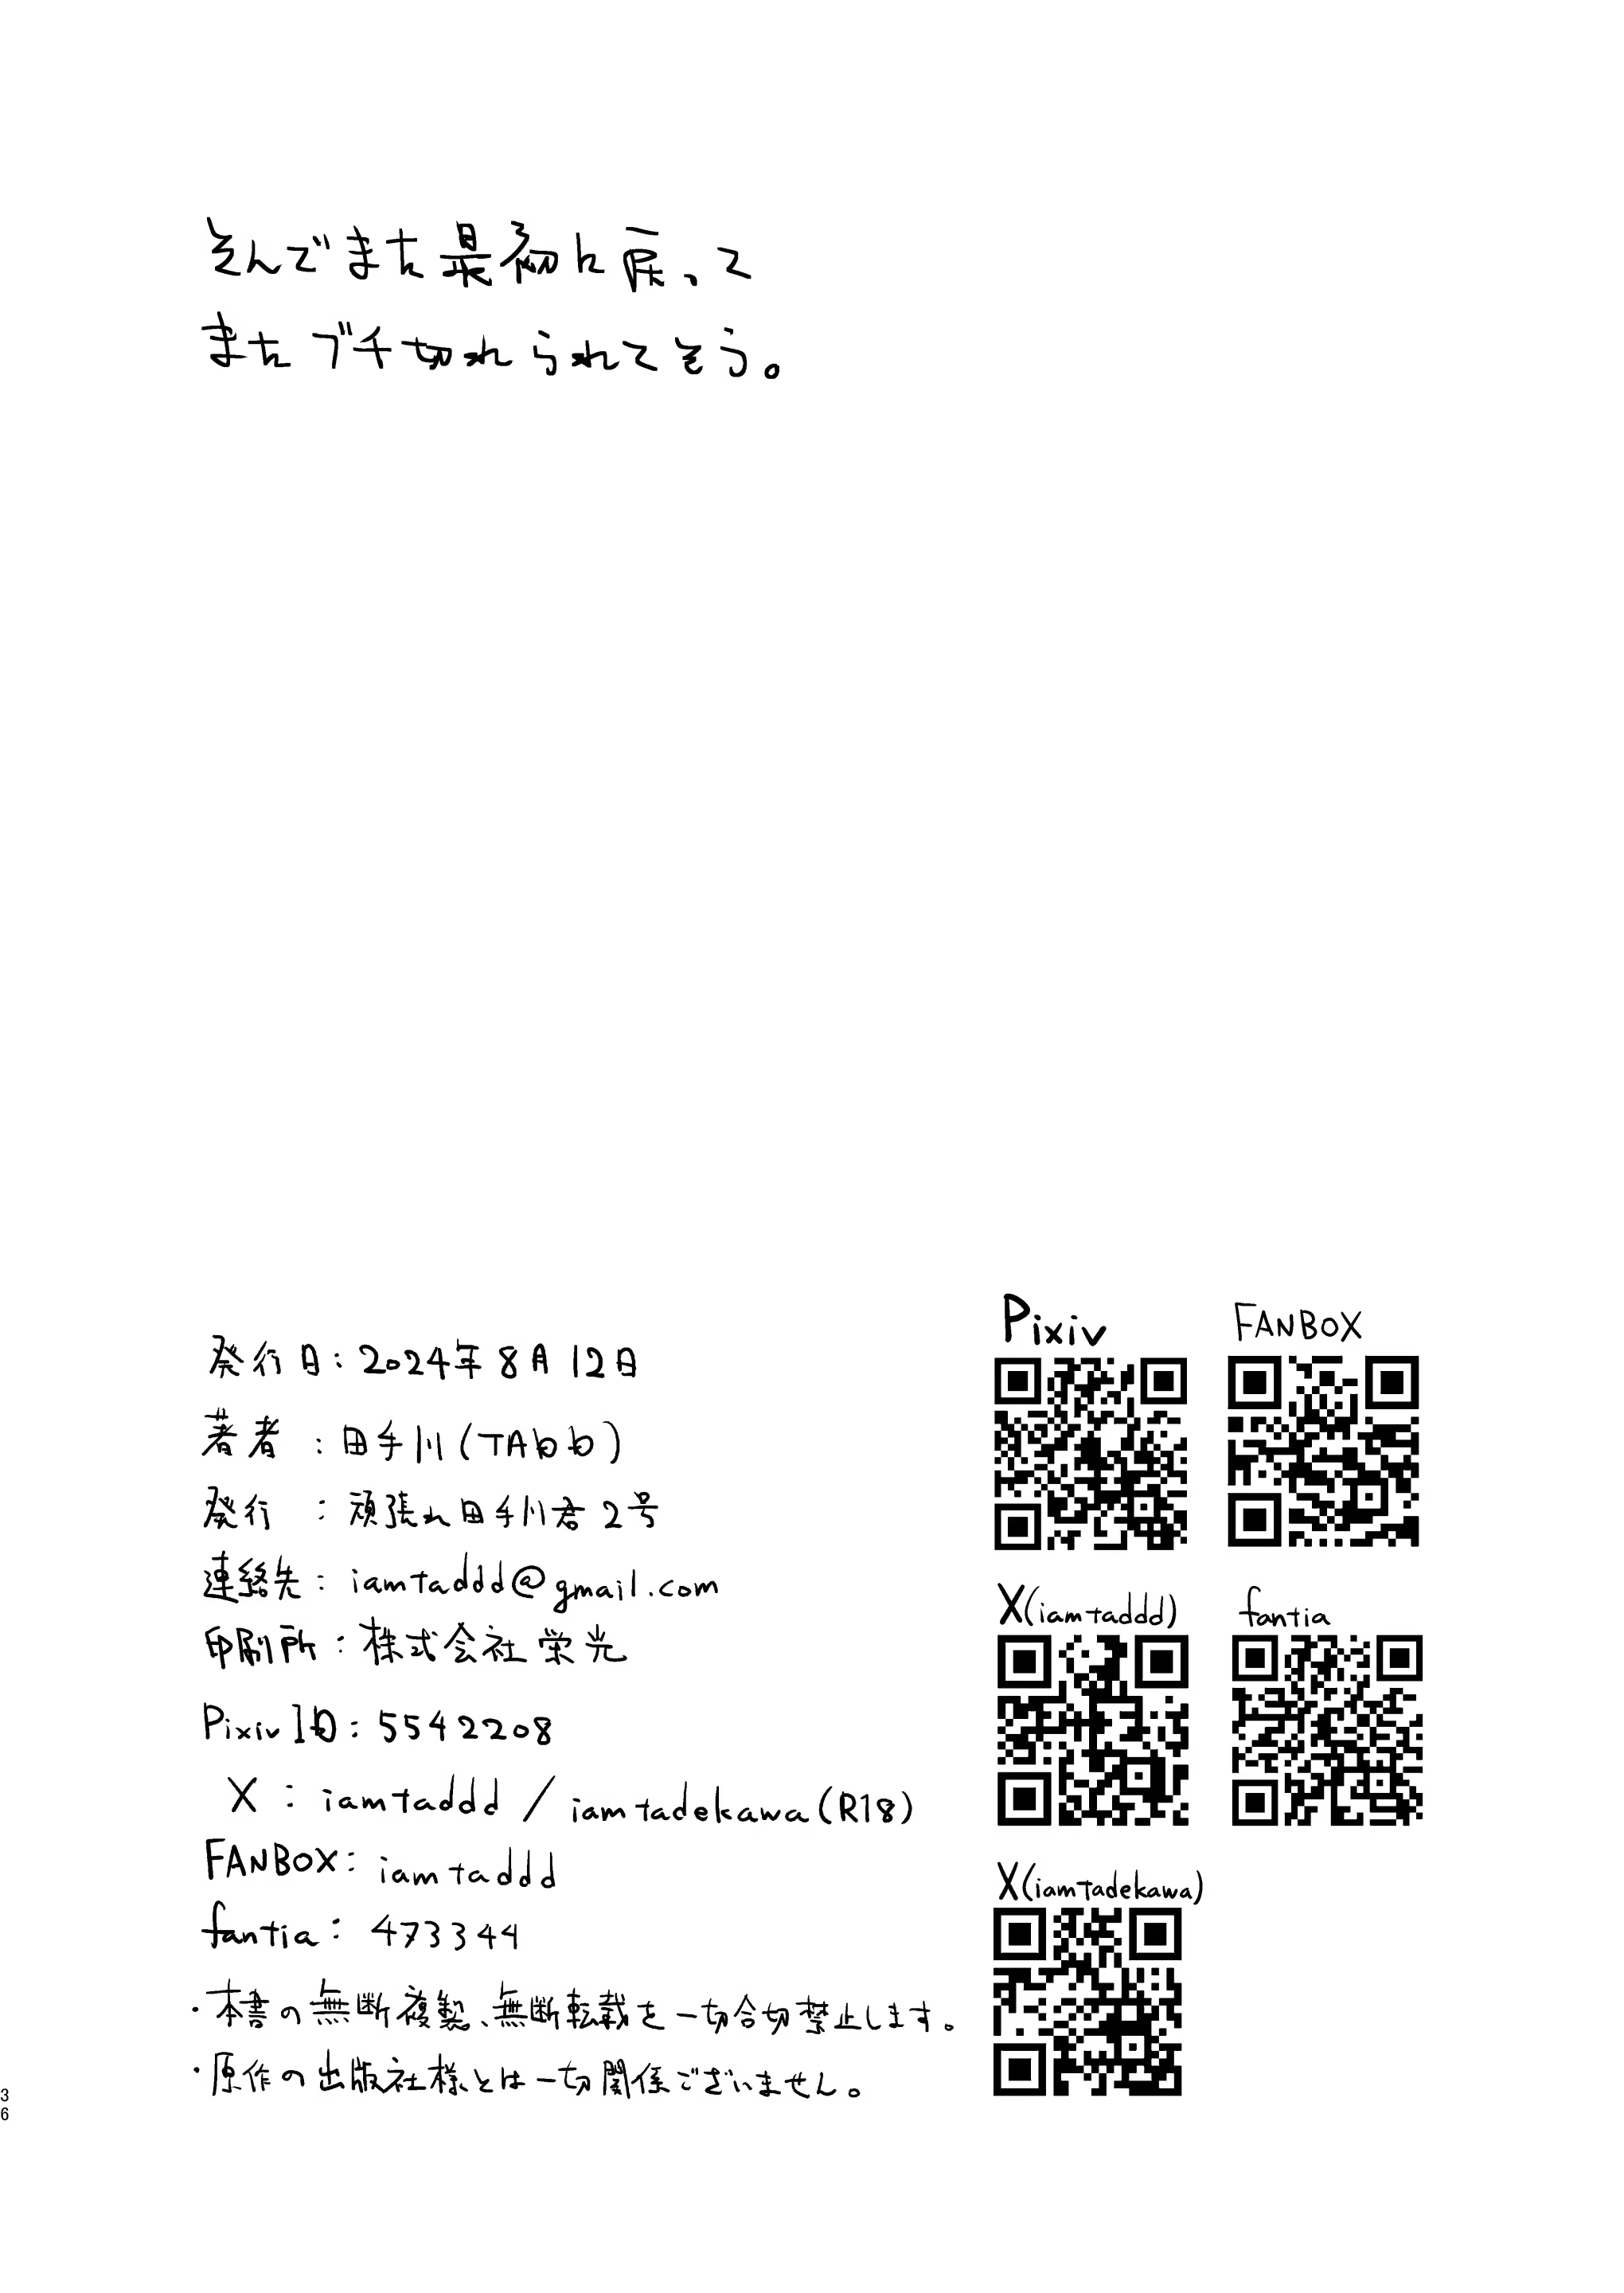 そんでまた最初に戻って
またブチ切れられてそう。
Pixiv
FANBOX
発行日：2024年8月12日
著者：田手川(TADD)
発行：頑張れ田手川君2号
連絡先：iamtaddd@gmail.com
印刷所：株式会社栄光
PixivID：5542208
X：iamtaddd/iamtadekawa(R18)
FANBOX：iamtaddd
fantia：473344
・本書の無断複製、無断転載を一切合切禁止します。
・原作の出版社様とは一切関係ございません。
X(iamtaddd)
fantia
X(iamtadekawa)
36